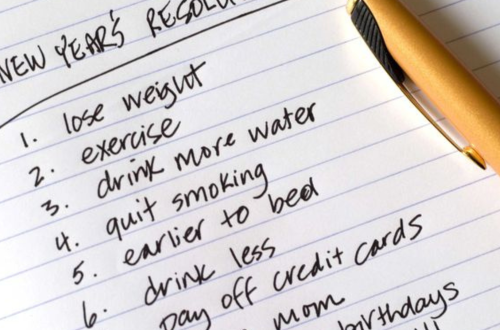 NEW YEAR'S
1. lose weight
2. exercise
3. drink more water
4. quit smoking
5. earlier to bed
6. drink less
pay off credit cards
mom
birthdays